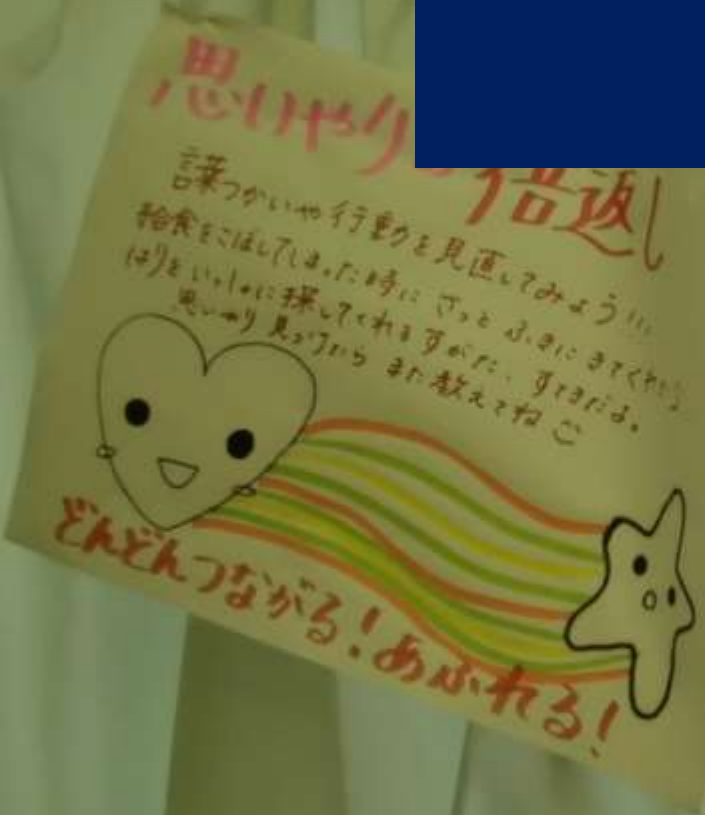 思いやりの倍返し
言葉つかいや行動を見直してみよう!!!
給食をこぼしてしまった時に さっと ふきに きてくれたり
はりを いっしょに探してくれるすがた、すてきだよ。
思いやり 見つけたら また教えてね
どんどんつながる!あふれる!